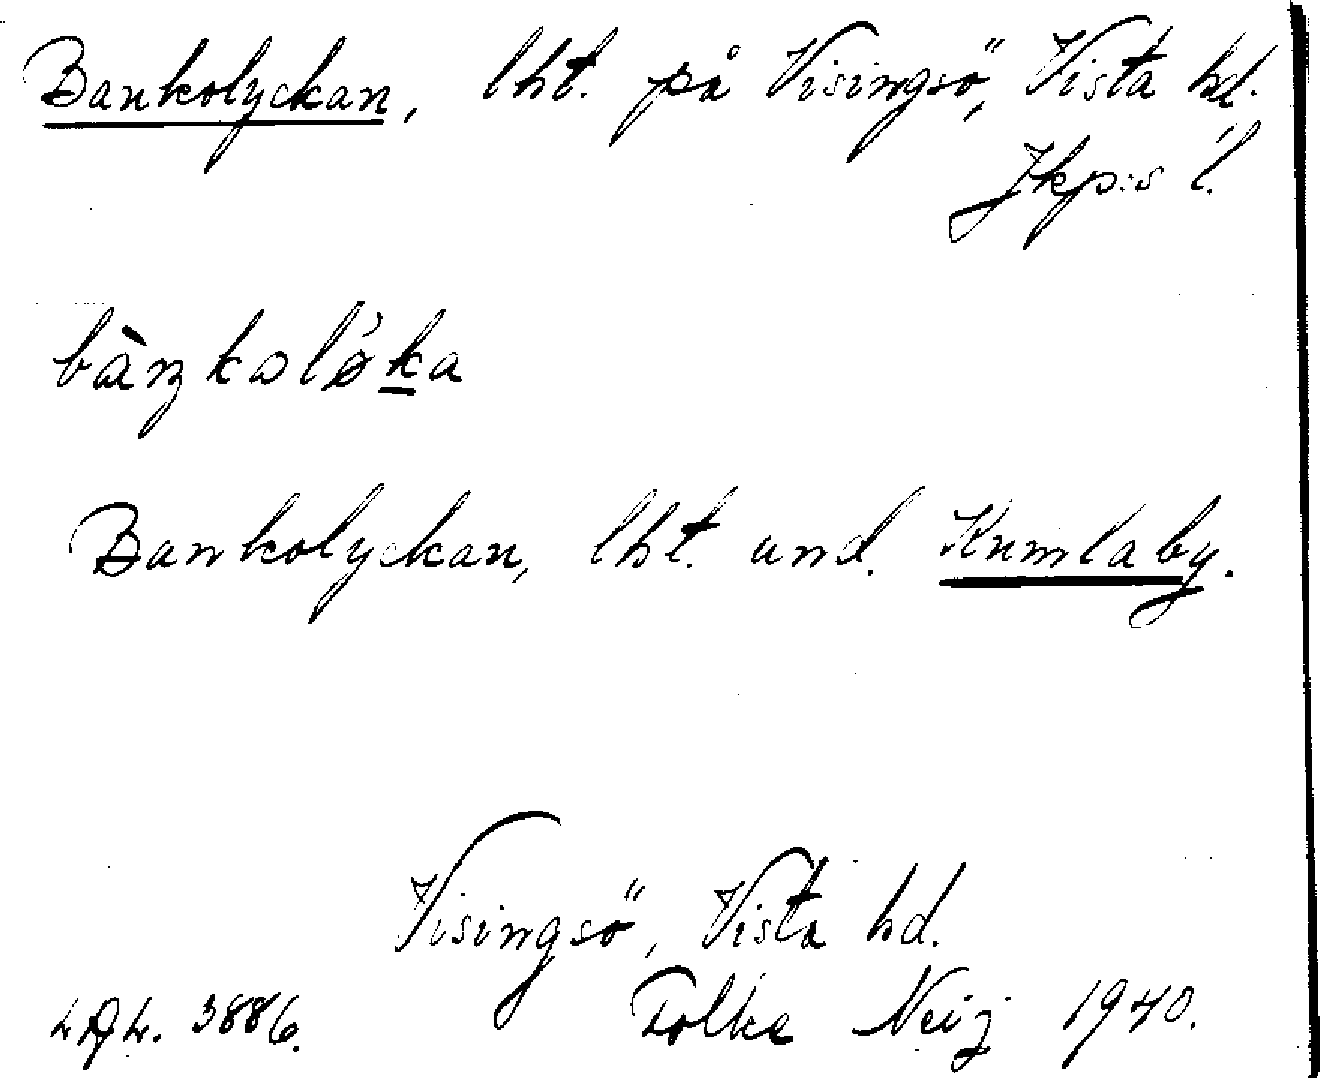 Bankolyckan, lht. på Visingsö, Vista hd.
Jkp:s l.
bànkolǿka
Bankolyckan, lht. und. Kumlaby.
Visingsö, Vista hd.
Folke Neij 1940.
3886.